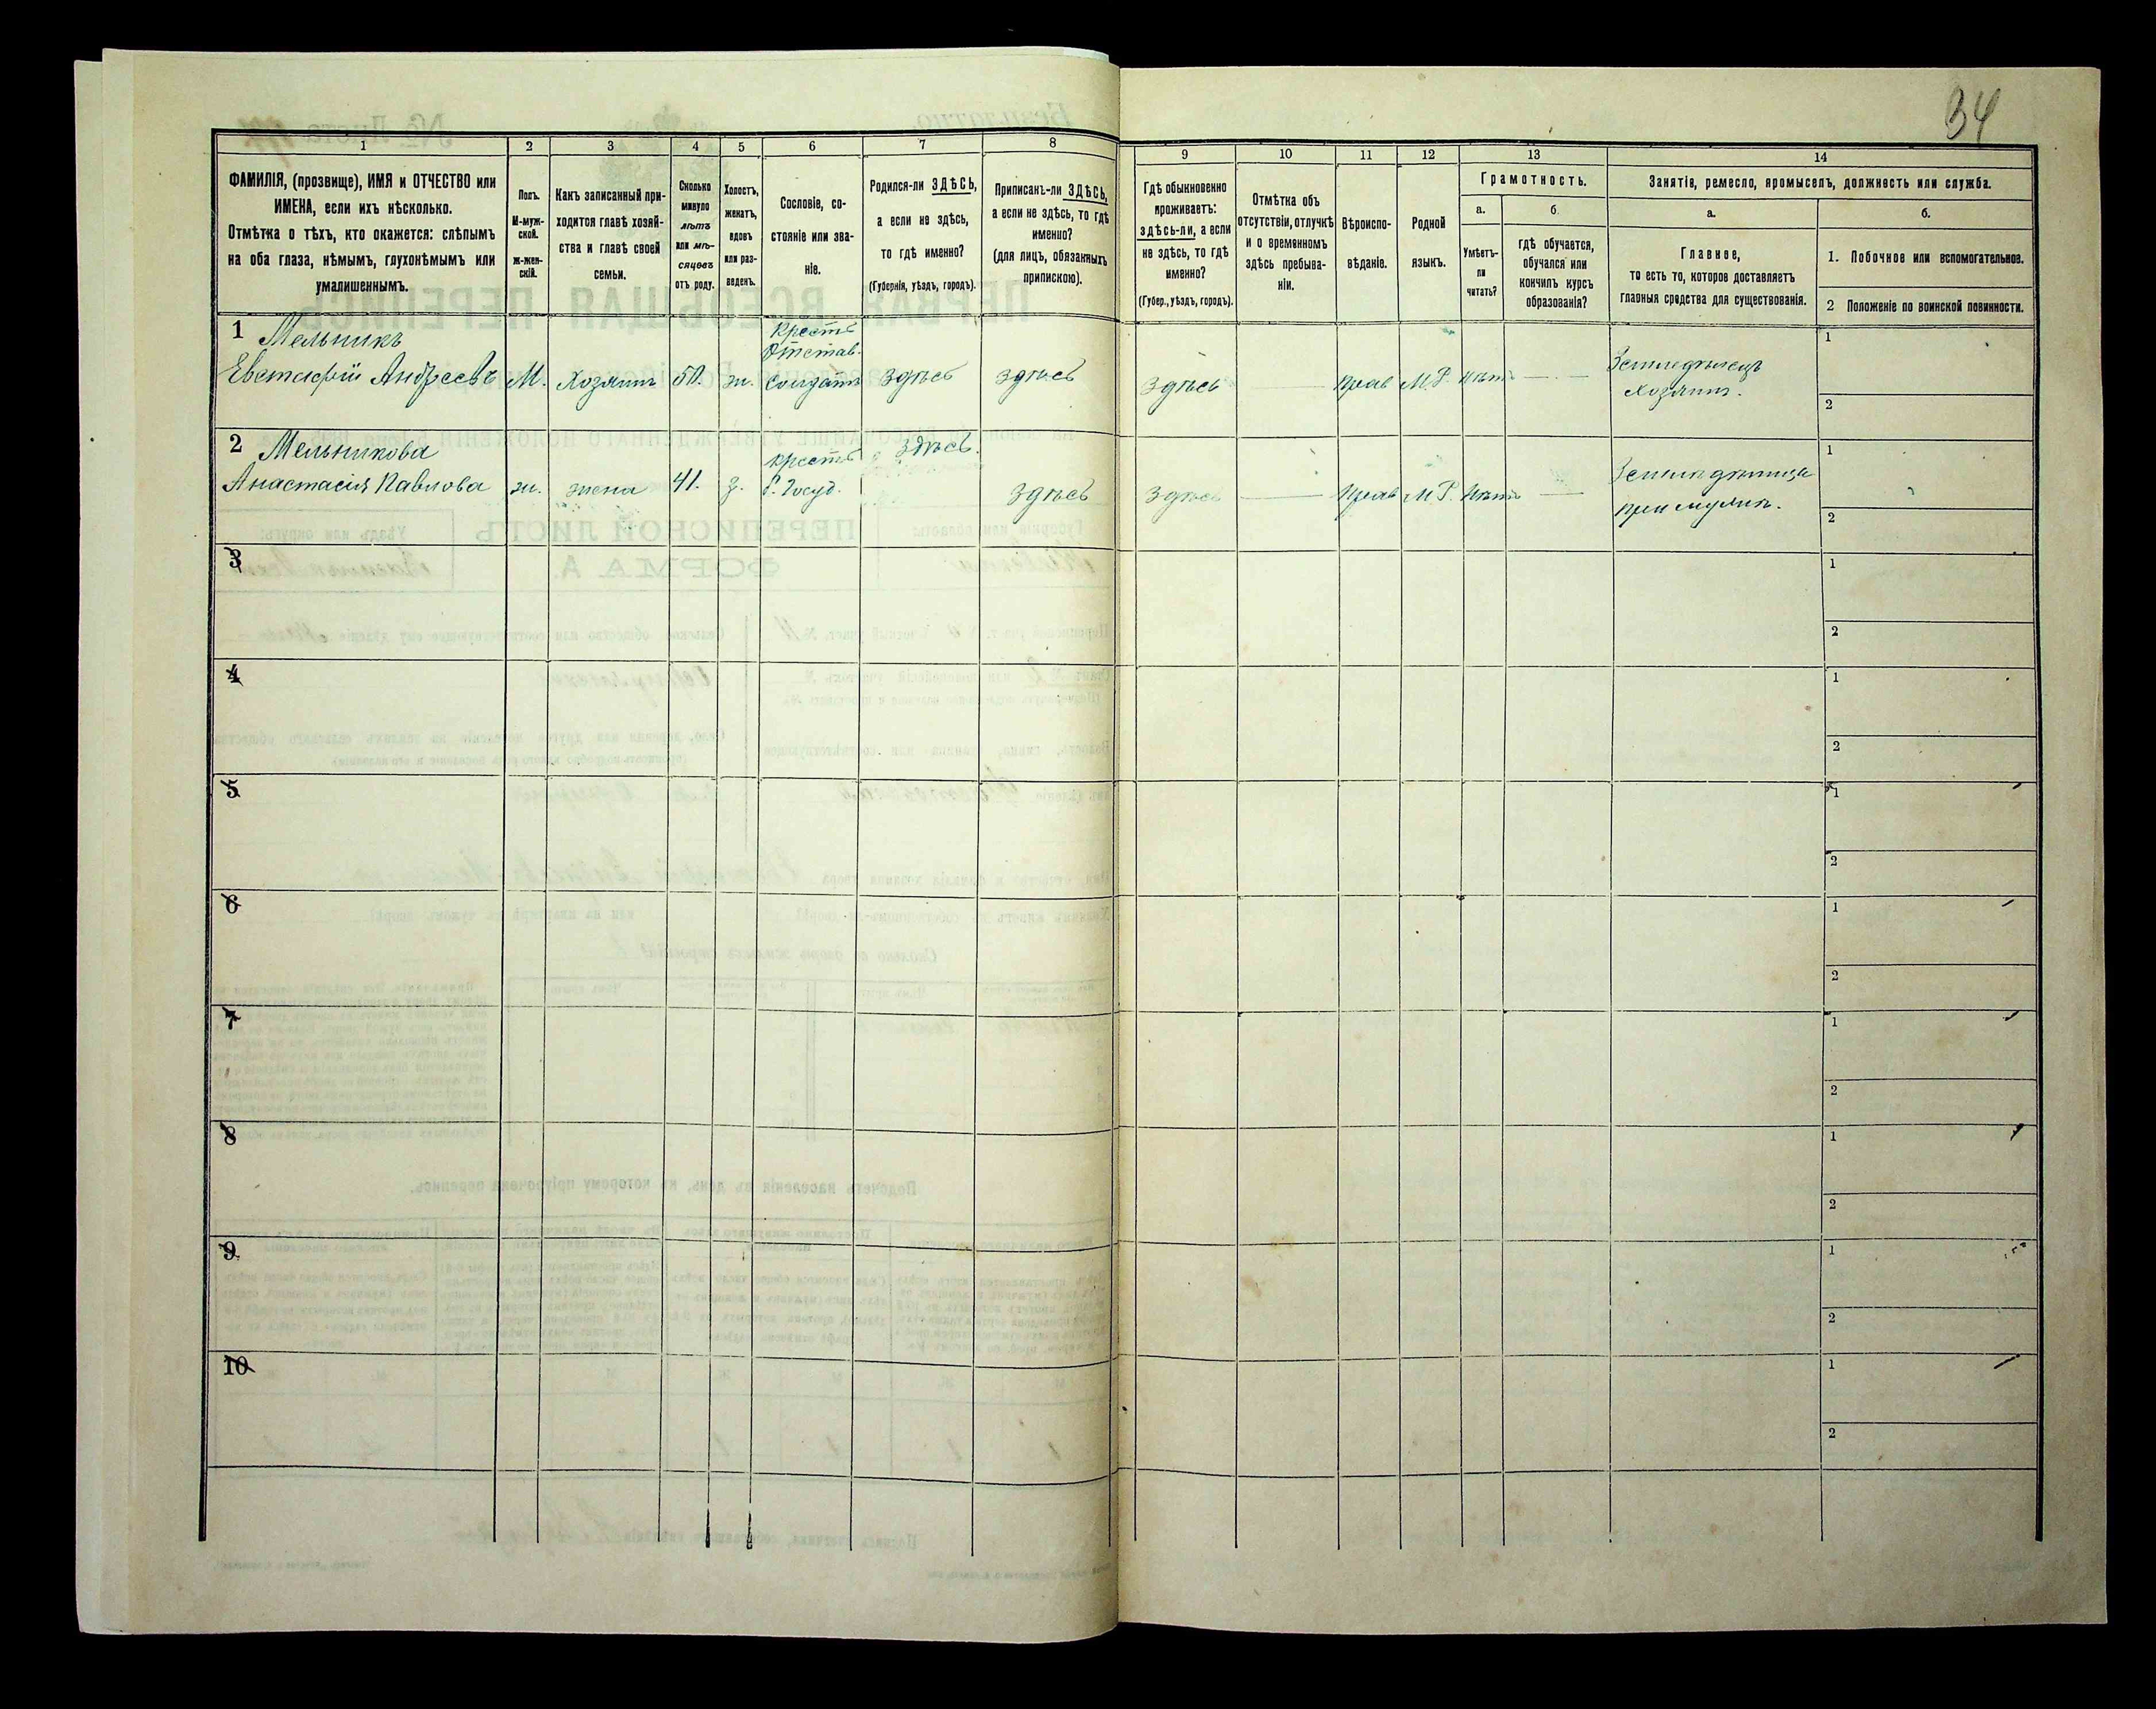 34
1
2
3
4
5
6
7
8
9
10
11
12
13
14
ФАМИЛІЯ, (прозвище), ИМЯ и ОТЧЕСТВО или
ИМЕНА, если ихъ нѣсколько.
Отмѣтка о тѣхъ, кто окажется: слѣпымъ
на оба глаза, нѣмымъ, глухонѣмымъ или
умалишеннымъ.
Полъ.
М-муж-
ской.
ж-жен-
скій.
Какъ записанный при-
ходится главѣ хозяй-
ства и главѣ своей
семьи.
Сколько
минуло
лѣтъ
или мѣ-
сяцевъ
отъ роду.
Холостъ,
женатъ,
вдовъ
или раз-
веденъ.
Сословіе, со-
стояніе или зва-
ніе.
Родился-ли ЗДѢСЬ,
а если не здѣсь,
то гдѣ именно?
(Губернія, уѣздъ, городъ).
Приписанъ-ли ЗДѢСЬ,
а если не здѣсь, то гдѣ
именно?
(для лицъ, обязанныхъ
припискою).
Гдѣ обыкновенно
проживаетъ:
здѣсь-ли, а если
не здѣсь, то гдѣ
именно?
(Губер., уѣздъ, городъ).
Отмѣтка объ
отсутствіи, отлучкѣ
и о временномъ
здѣсь пребыва-
ніи.
Вѣроиспо-
вѣданіе.
Родной
языкъ.
Грамотность.
а.
б.
Умѣетъ-
ли
читать?
гдѣ обучается,
обучался или
кончилъ курсъ
образованія?
Занятіе, ремесло, промыселъ, должность или служба.
а.
б.
Главное,
то есть то, которое доставляетъ
главныя средства для существованія.
1. Побочное или вспомогательное.
2 Положеніе по воинской повинности.
1 Мельникъ
Евстафій Андреевъ
М.
Хозяинъ
50.
ж.
Крестъ
Отстав.
Солдатъ
Здѣсь
Здѣсь
Здѣсь
Прав
М.Р.
нѣтъ
Земледѣлецъ
Хозяинъ.
1
2
2 Мельникова
Анастасія Павлова
ж.
жена
41.
з.
Крестъ
б. Госуд.
Здѣсь.
Здѣсь
Здѣсь
Прав
М.Р.
Нѣтъ
при мужѣ.
1
2
3
1
2
4
1
2
5
1
2
6
1
2
7
1
2
8
1
2
9
1
2
10
1
2